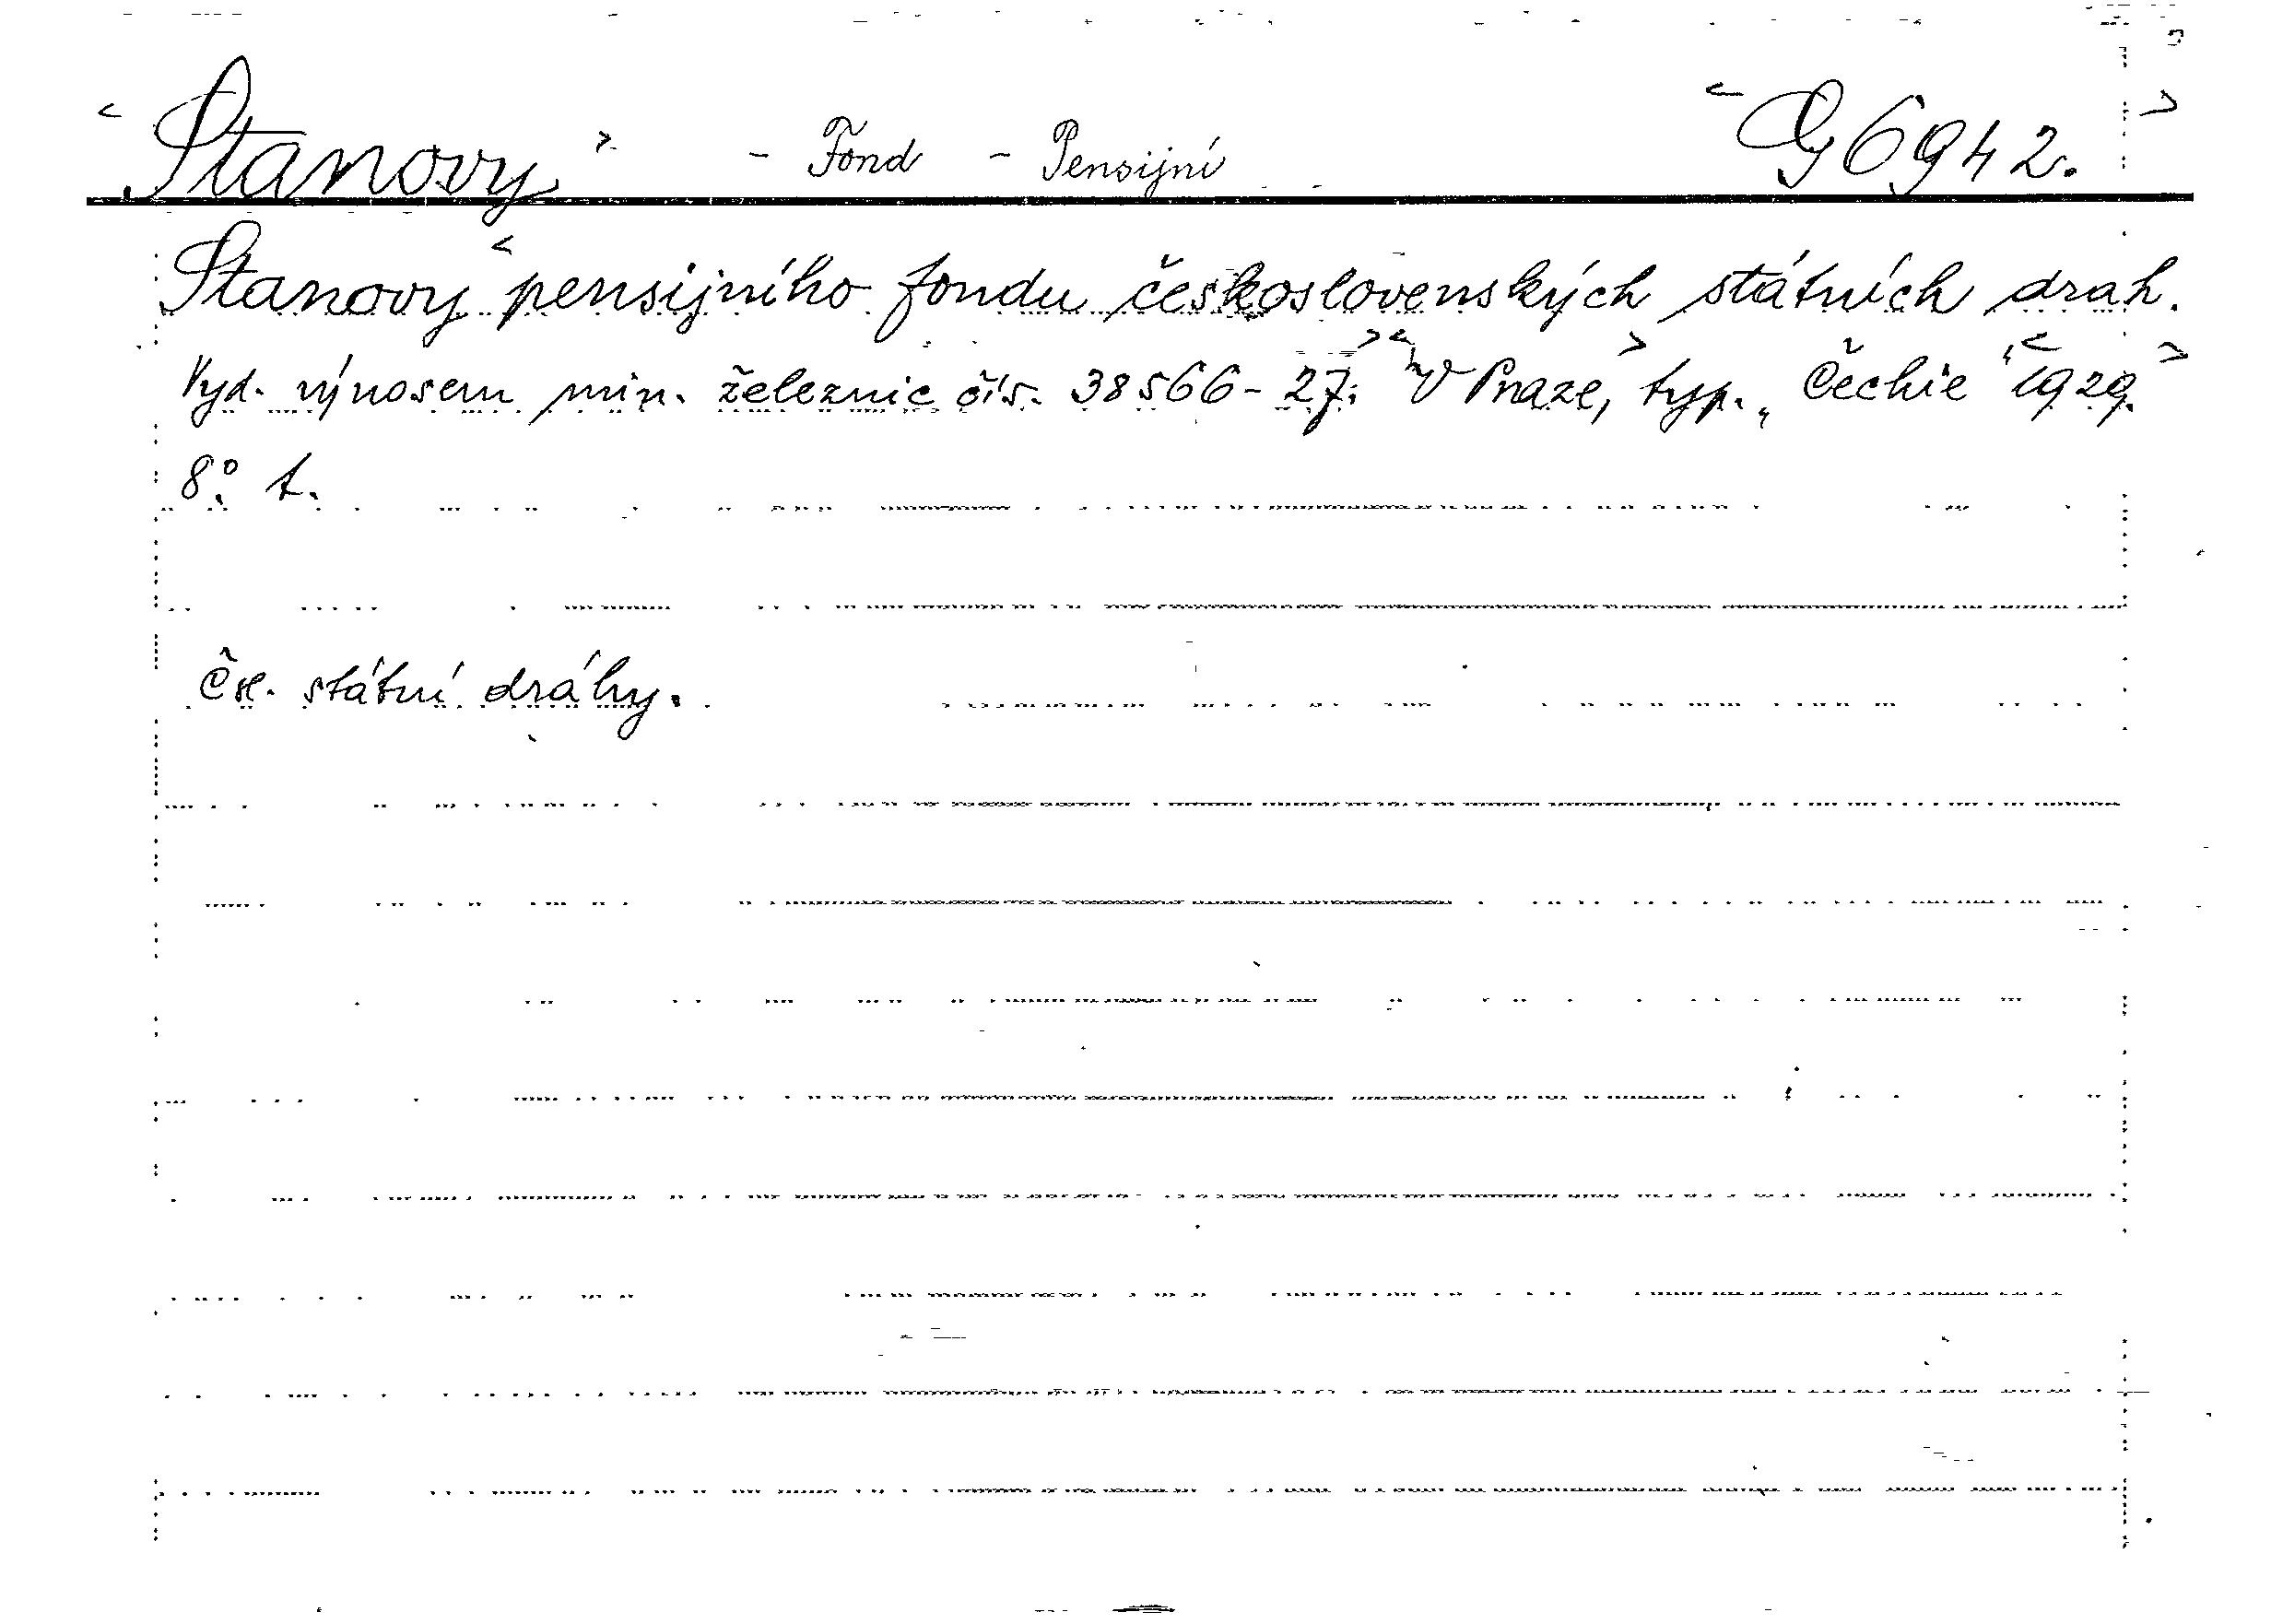 <Stanovy> - Fond - Pensijní <G 6942.>
Stanovy <pensijního fondu československých státních drah.
Vyd. výnosem min. železnic čís. 38566-27.> <V Praze,> typ. „Čechie“ <1929.>
8°. t.
Čsl. státní dráhy.